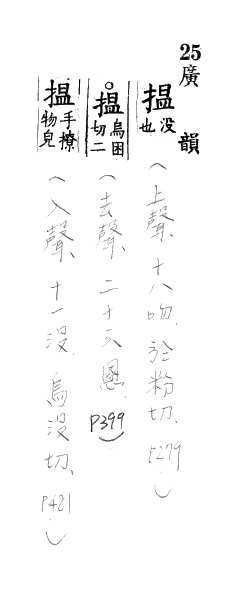 25廣韻
搵 没也 (上聲、十八吻、於粉切、P279)
搵 烏困切二 (去聲、二十六慁、P399)
搵 手撩物皃 (入聲、十一没、烏没切、P481)